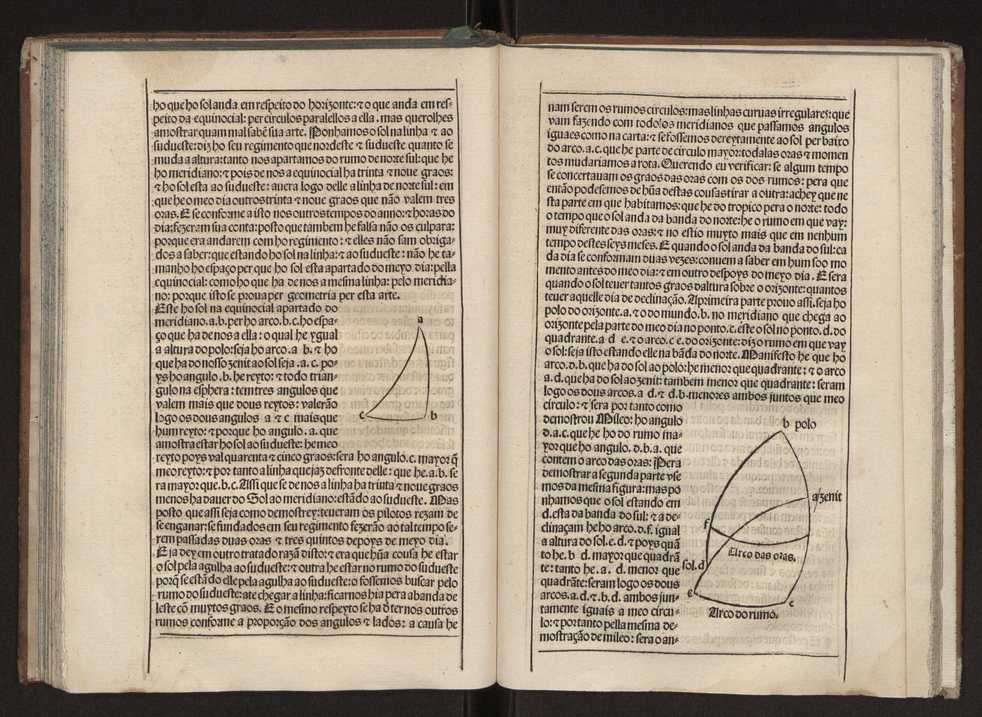 ho que ho sol anda em respeito do horizonte: ⁊ o que anda em res-
peito da equinocial: per circulos parallelos a ella. mas querolhes
amostrar quam mal sabẽ sua arte. Ponhamos o sol na linha ⁊ ao
sudueste: diz ho seu regimento que nordeste ⁊ sudueste quanto se
muda a altura: tanto nos apartamos do rumo de norte sul: que he
ho meridiano: ⁊ pois de nos a equinocial ha trinta ⁊ noue graos:
⁊ ho sol esta ao sudueste: auera logo delle a linha de norte sul: em
que he o meo dia outros trinta ⁊ noue graos que não valem tres
oras. E se conforme a isto nos outros tempos do anno: ⁊ horas do
dia: fezeram sua conta: posto que tambem he falsa não os culpara:
porque era andarem com ho regimento: ⁊ elles não sam obriga-
dos a saber: que estando ho sol na linha: ⁊ ao sudueste: não he ta-
manho ho espaço per que ho sol esta apartado do meyo dia: pella
equinocial: como ho que ha de nos a mesma linha: pelo meridia-
no: porque isto se proua per geometria per esta arte.
Este ho sol na equinocial apartado do
meridiano. a.b. per ho arco. b.c. ho espa-
ço que ha de nos a ella: o qual he ygual
a altura do polo: seja ho arco. a b. ⁊ ho
que ha do nosso zenit ao sol seja. a.c. po-
ys ho angulo. b. he reyto: ⁊ todo trian-
gulo na esphera: tem tres angulos que
valem mais que dous reytos: valerão
logo os dous angulos a ⁊ c mais que
hum reyto: ⁊ porque ho angulo. a. que
amostra estar ho sol ao sudueste: he meo
reyto poys val quarenta ⁊ cinco graos: sera ho angulo. c. mayor q̃
meo reyto: ⁊ por tanto a linha que jaz defronte delle: que he. a.b. se
ra mayor que. b.c. Assi que se de nos a linha ha trinta ⁊ noue graos
menos ha dauer do Sol ao meridiano: estãdo ao sudueste. Mas
posto que assi seja como demostrey: teueram os pilotos rezam de
se enganar: se fundados em seu regimento fezerão ao tal tempo se-
rem passadas duas oras ⁊ tres quintos depoys de meyo dia.
E ja dey em outro tratado razã disto: ⁊ era que hũa cousa he estar
o sol pela agulha ao sudueste: ⁊ outra he estar no rumo do sudueste
porq̃ se estãdo elle pela agulha ao sudueste: o fossemos buscar pelo
rumo do sudueste: ate chegar a linha: ficarnos hia pera a banda de
leste cõ muytos graos. E o mesmo respeyto se ha d̃ ter nos outros
rumos conforme a proporção dos angulos ⁊ lados: a causa he
a
c
b
nam serem os rumos circulos: mas linhas curuas irregulares: que
vam fazendo com todolos meridianos que passamos angulos
iguaes como na carta: ⁊ se fossemos dereytamente ao sol per baixo
do arco. a.c. que he parte de circulo mayor: todalas oras ⁊ momen
tos mudariamos a rota. Querendo eu verificar: se algum tempo
se concertauam os graos das oras com os dos rumos: pera que
então podesemos de hũa destas cousas tirar a outra: achey que ne
sta parte em que habitamos: que he do tropico pera o norte: todo
o tempo que o sol anda da banda do norte: he o rumo em que vay:
muy diferente das oras: ⁊ no estio muyto mais que em nenhum
tempo destes seys meses. E quando o sol anda da banda do sul: ca
da dia se conformam duas vezes: conuem a saber em hum soo mo
mento antes do meo dia: ⁊ em outro despoys do meyo dia. E sera
quando o sol teuer tantos graos daltura sobre o orizonte: quantos
teuer aquelle dia de declinação. A primeira parte prouo assi. seja ho
polo do orizonte. a. ⁊ o do mundo. b. no meridiano que chega ao
orizonte pela parte do meo dia no ponto. c. este o sol no ponto. d. do
quadrante. a d e. ⁊ o arco. c e. do orizonte: diz o rumo em que vay
o sol: seja isto estando elle na bãda do norte. Manifesto he que ho
arco. d.b. que ha do sol ao polo: he menor que quadrante: ⁊ o arco
a. d. que ha do sol ao zenit: tambem menor que quadrante: seram
logo os dous arcos. a d. ⁊ d.b. menores ambos juntos que meo
circulo: ⁊ sera por tanto como
demostrou Mileo: ho angulo
d.a.c. que he ho do rumo ma-
yor que ho angulo. d.b.a. que
contem o arco das oras: Pera
demostrar a segunda parte vse
mos da mesma figura: mas po
nhamos que o sol estando em
d. esta da banda do sul: ⁊ a de-
clinaçam he ho arco. d.f. igual
a altura do sol. e.d. ⁊ poys quã
to he. b d. mayor que quadrã
te: tanto he. a. d. menor que
quadrãte: seram logo os dous
arcos. a.d. ⁊. b.d. ambos jun-
tamente iguais a meo circu-
lo: ⁊ por tanto pella mesma de-
mostração de mileo: sera o an-
b polo
a zenit
f
Circo das oras.
sol. d
e
c
Arco do rumo.